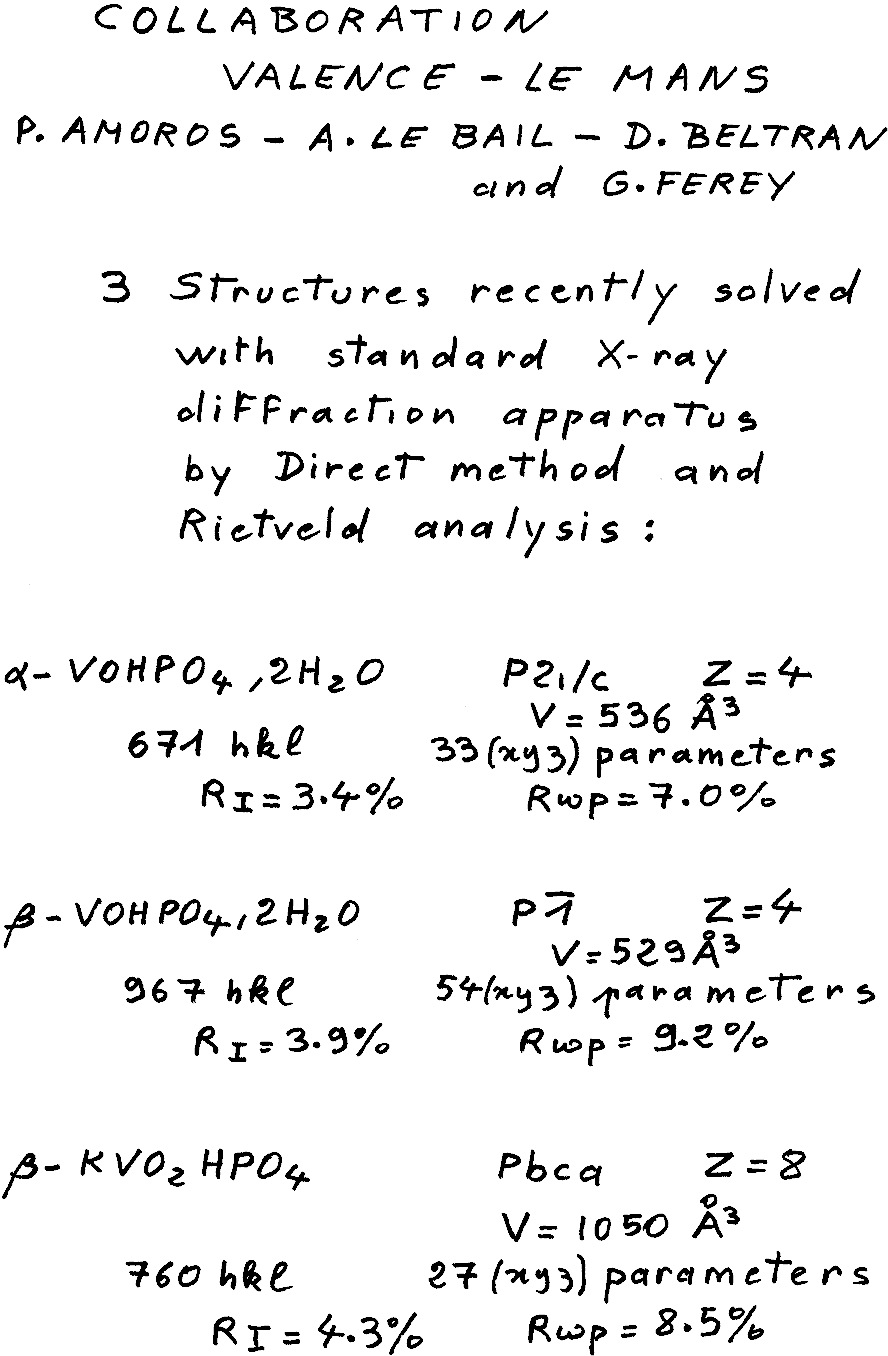 COLLABORATION
VALENCE - LE MANS
P. AMOROS - A. LE BAIL - D. BELTRAN
and G. FEREY
3 Structures recently solved
with standard X-ray
diffraction apparatus
by Direct method and
Rietveld analysis :
α- VOHPO₄,2H₂O P2₁/c Z=4
V = 536 Å³
671 hkl 33(xyz) parameters
R_I = 3.4% Rwp = 7.0%
β- VOHPO₄,2H₂O P1̄ Z=4
V = 529 Å³
967 hkl 54(xyz) parameters
R_I = 3.9% Rwp = 9.2%
β- KVO₂HPO₄ Pbca Z=8
V = 1050 Å³
760 hkl 27(xyz) parameters
R_I = 4.3% Rwp = 8.5%